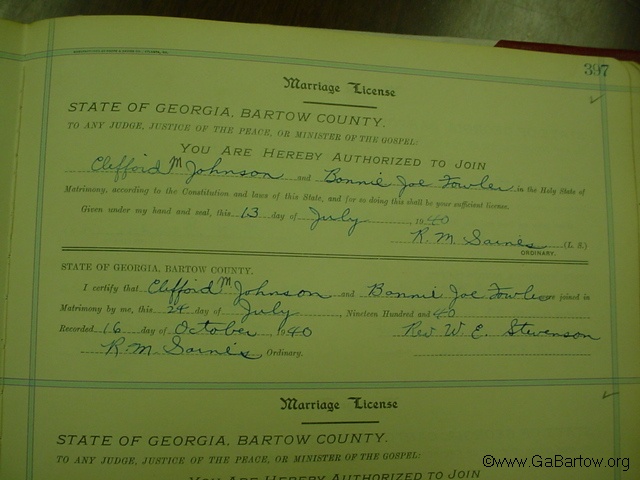 397
Marriage License
STATE OF GEORGIA, BARTOW COUNTY.
TO ANY JUDGE, JUSTICE OF THE PEACE, OR MINISTER OF THE GOSPEL:
YOU ARE HEREBY AUTHORIZED TO JOIN
Clifford M Johnson and Bonnie Joe Fowler in the Holy State of
Matrimony, according to the Constitution and laws of this State, and for so doing this shall be your sufficient license.
Given under my hand and seal, this 13 day of July, 1940
R. M. Gaines (L. S.)
ORDINARY.
STATE OF GEORGIA, BARTOW COUNTY.
I certify that Clifford M Johnson and Bonnie Joe Fowler were joined in
Matrimony by me, this 24 day of July, Nineteen Hundred and 40
Recorded 16 day of October, 1940 Rev W. E. Stevenson
R. M. Gaines Ordinary.
Marriage License
STATE OF GEORGIA, BARTOW COUNTY.
TO ANY JUDGE, JUSTICE OF THE PEACE, OR MINISTER OF THE GOSPEL:
YOU ARE HEREBY AUTHORIZED TO JOIN
©www.GaBartow.org